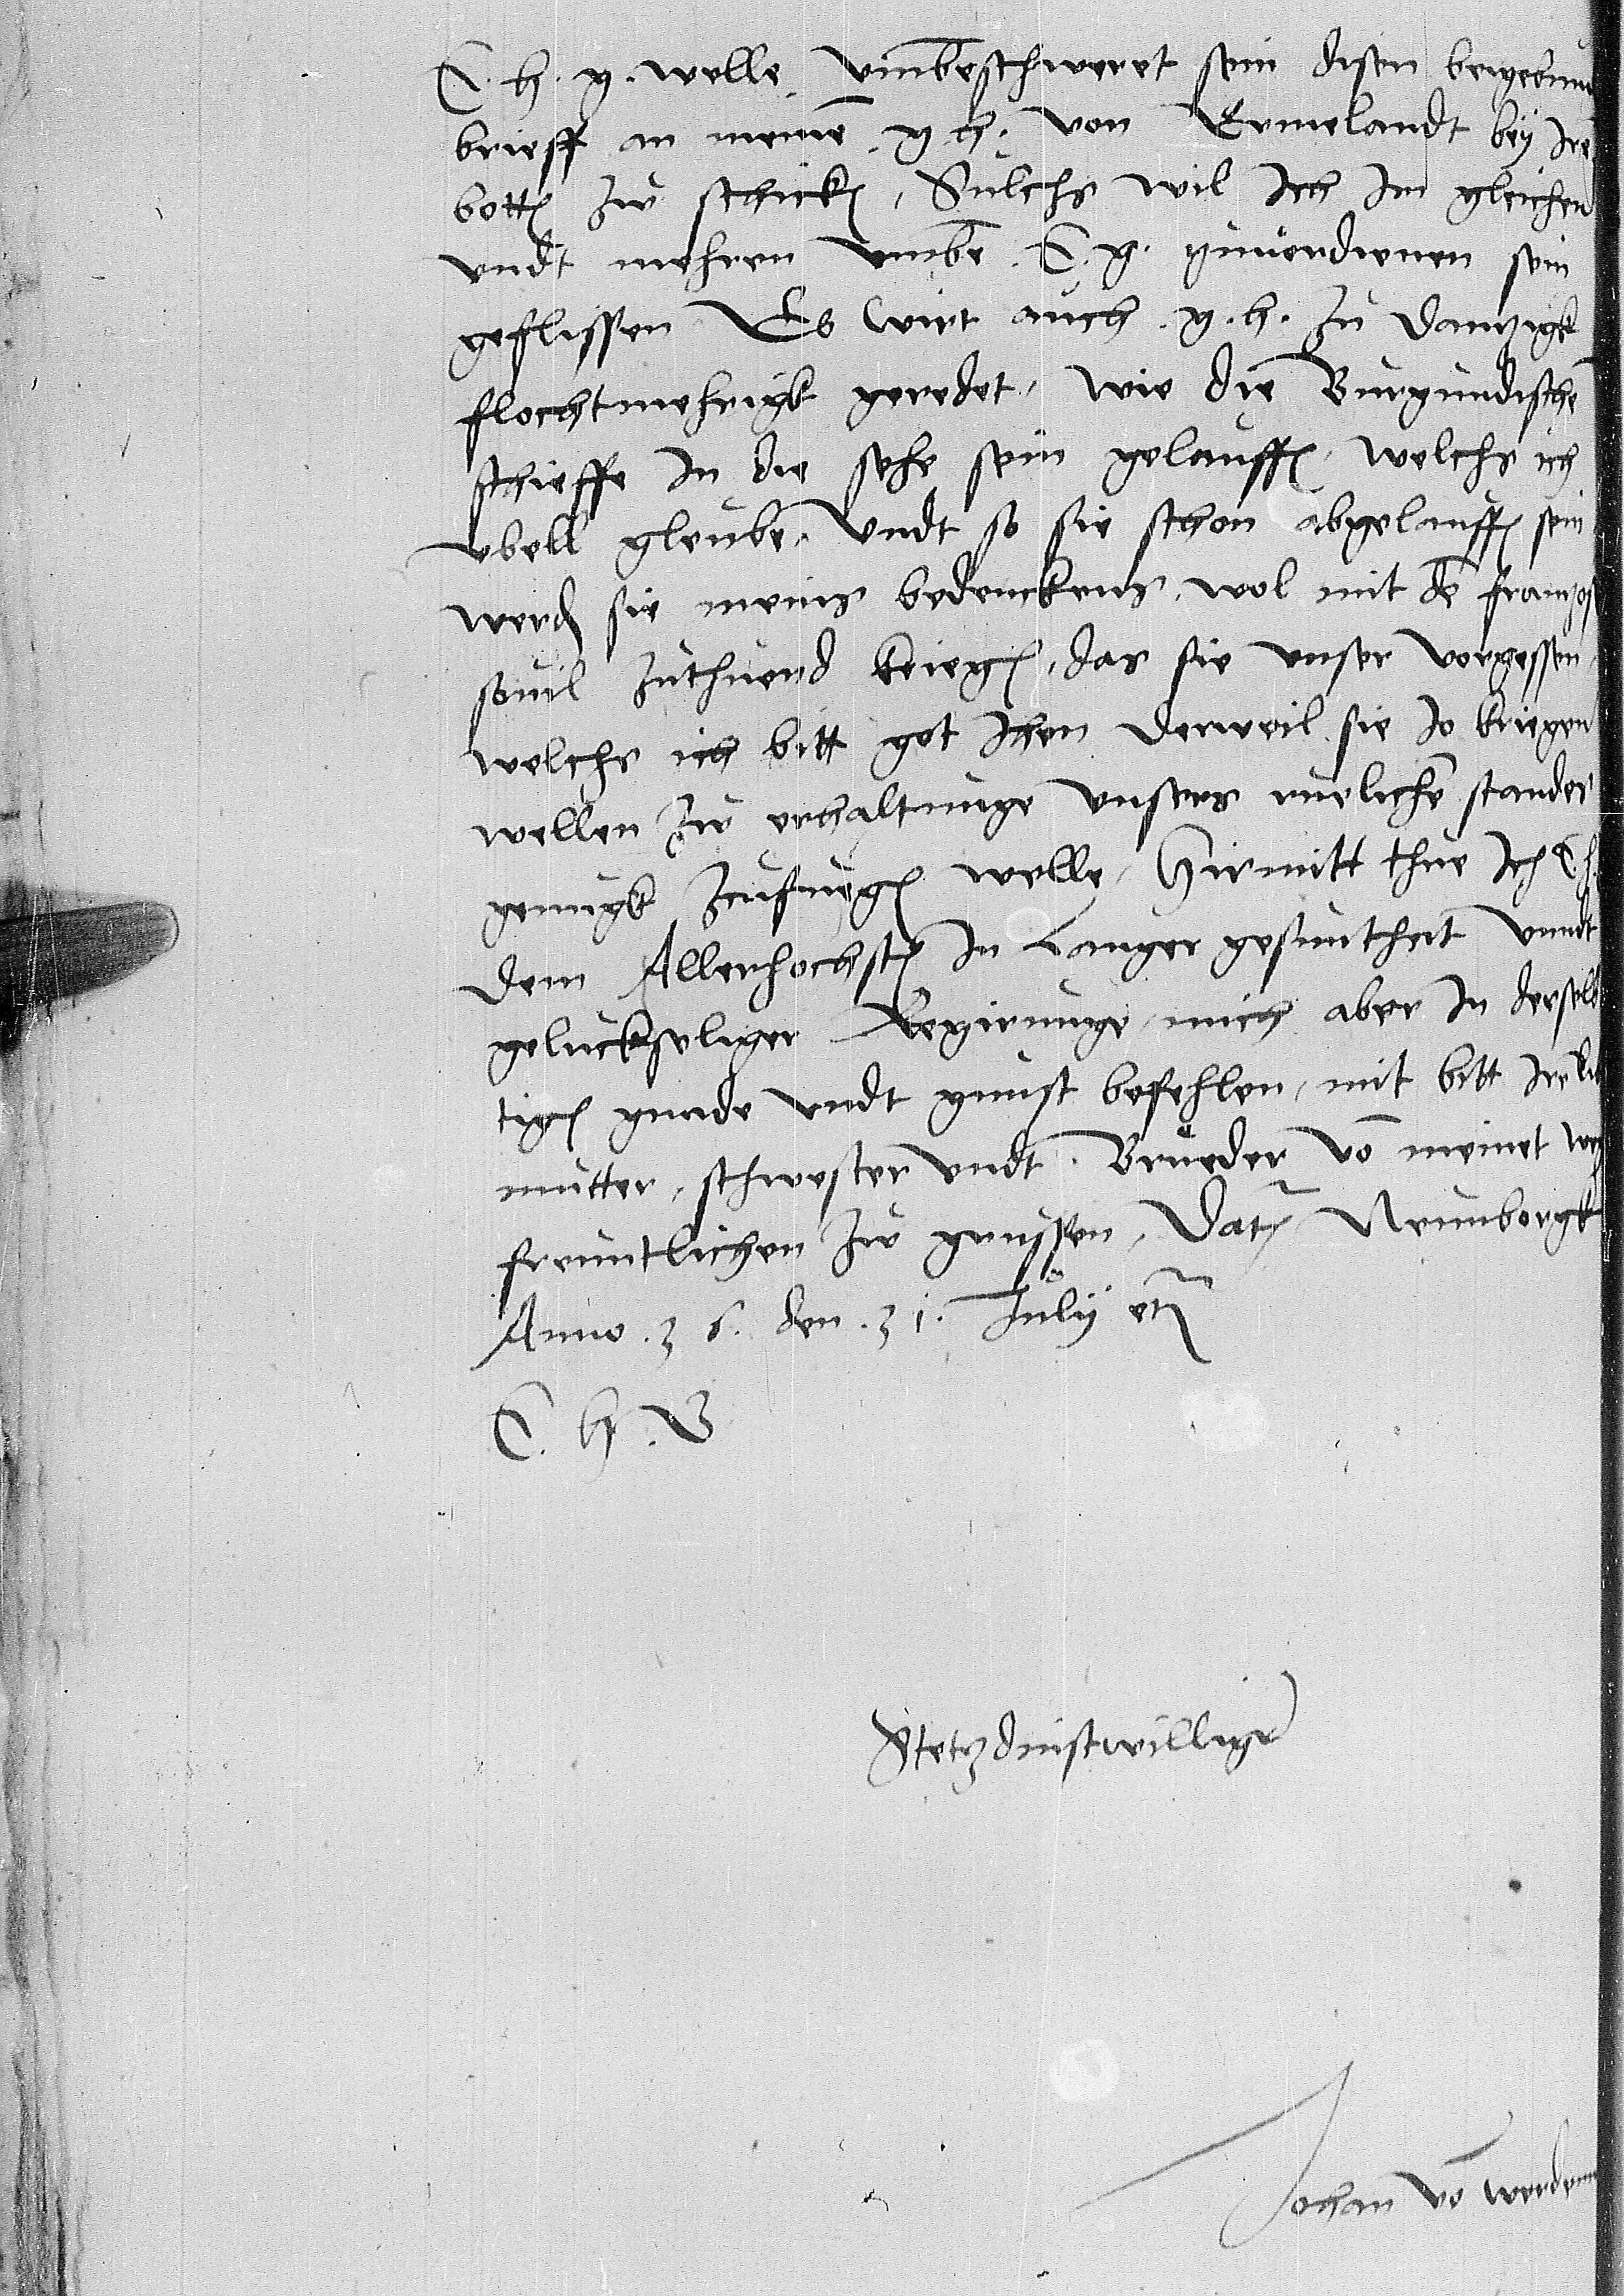 E. h. g. welle vmbeschweret sein disen beygebund
brieff an meinē g. h. von Ermelandt bey Irē
bottē zw schickē, Sulchs wil Ich Im gleichen
vndt mehren vmbe E. g. zuuordienen sein
geflissen Es wirt auch g. h. zu dantzigk
flochtmehrigk geredet, wie die Burgundischē
schieffe In die sehe sein gelauffē, welchs ich
vbell gleube, Vndt so sie schon abgelauffē sein
werdē sie meins bedenckens, wol mit dē frantzos
souil zuthuend kriegē, das sie vnser vorgessen,
welchs ich bitt got Ihen derweil sie Jo kriegen
wellen zw erhaltunge vnsers ruelichē standes
genugk zufuegē welle, Hirmitt thue Ich E. h.
dem Allerhochstē In Langer gesuntheit vnndt
geluckseliger Regirunge, mich aber In derselb
tigē gnade vndt gunst befehlen, mit bitt Ire
mutter, schwester vndt Brueder vō meinet weg
freuntlichen zw grussen, Datē Neunborgk
Anno. 36. den. 31. July etc
E. h. G
Stetz dinstwillige
Johan vō werdenn